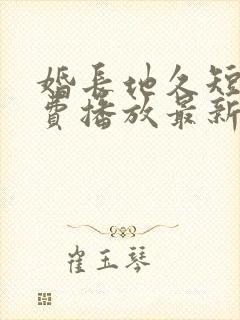 婚长地久短
费播放最新
崔玉琴